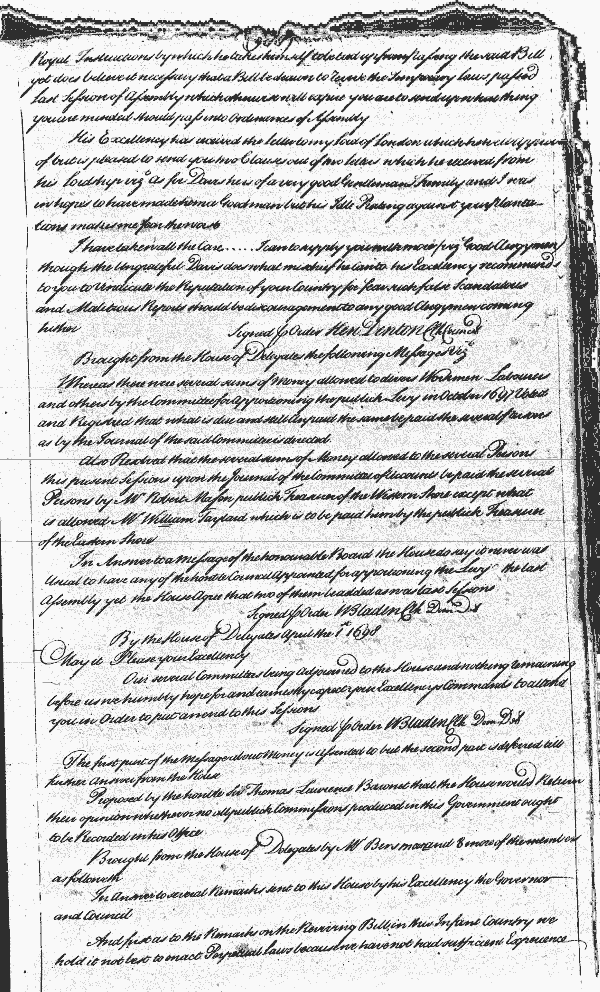 Royal Instructions by which he takes himself to be tied up from passing the said Bill,
yet does believe it necessary that a Bill be drawn to revive the Temporary laws, passed
last Session of Assembly which otherwise will expire you are to send up where thing
you are minded should pass into Ordinances of Assembly
His Excellency has received the letter to my Lord of London which he
of but is pleased to send you two Clauses out of two letters which he received from
his lordship vizt As for Davis he is of a very good Gentlemans Family and I was
in hopes to have made him a Good man but his Idle Prating against your planta-
tions makes me fear the worst
I have taken all the Care ..... I can to supply you with more (vizt Good Clergymen)
though the Ungrateful Davis does what mischief he can to his Excellency recommends
to you to Vindicate the Reputation of your Country for fear such false Scandalous
and Malitious Reports should be discouragement to any good Clergymen coming
hither
Signed p Order Hen Denton Cl Council
Brought from the House of Delegates the following Messages Vizt
Whereas there were several sums of Money allowed to divers Workmen Labourers
and others by the Committee for Apportioning the publick Levy in October 1697 Voted
and Registred that what is due and still unpaid the same be paid the several Persons
as by the Journal of the said Committee is directed
Also Resolved that the several sums of Money allowed to the several Persons
this present Sessions upon the Journal of the Committee of Accounts be paid the several
Persons by Mr Robert Mason publick Treasurer of the Western Shore except what
is allowed Mr William Taylard which is to be paid him by the publick Treasurer
of the Eastern Shore
In Answer to a Message of the honourable Board the House do say it never was
Usual to have any of the honble Council Appointed for apportioning the Levy the last
Assembly yet the House Agree that two of them be added as was last Sessions
Signed p Order W Bladen Cl Dom Del
By the House of Delegates April the 1st 1698
May it Please your Excellency
Our several Committees being adjourned to the House and nothing remaining
before us we humbly hope for and earnestly expect your Excellencys Commands to attend
you in Order to put an end to this Sessions
Signed p Order W Bladen Clk Dom Del
The first part of the Message about Money is assented to but the second part is deferred till
further Answer from the House
Proposed by the honble Sir Thomas Lawrence Baronet that the House would Return
their opinion whether or no all publick Commissions produced in this Government ought
to be Recorded in his Office
Brought from the House of Delegates by Mr and 8 more of the members
as followeth
In Answer to several Remarks sent to this House by his Excellency the Governor
and Council
And first as to the Remarks on the Reviving Bill, in this Infant Country we
hold it not best to enact Perpetual laws because we have not had sufficient Experience